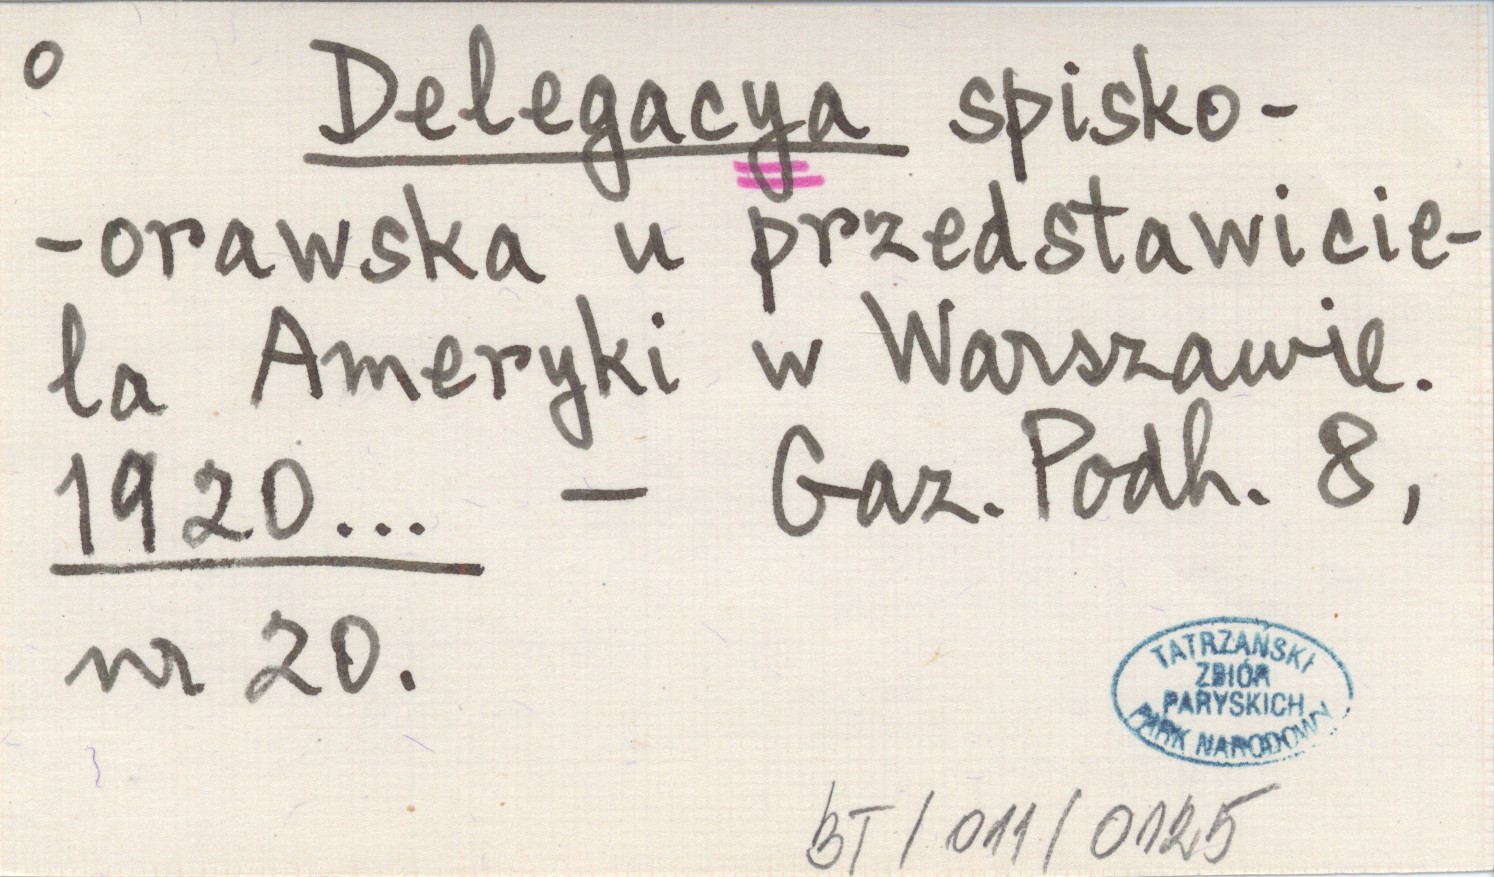 o Delegacya spisko-
-orawska u przedstawicie-
la Ameryki w Warszawie.
1920... – Gaz. Podh. 8,
nr 20.
TATRZAŃSKI
ZBIÓR
PARYSKICH
PARK NARODOWY
BT/011/0125